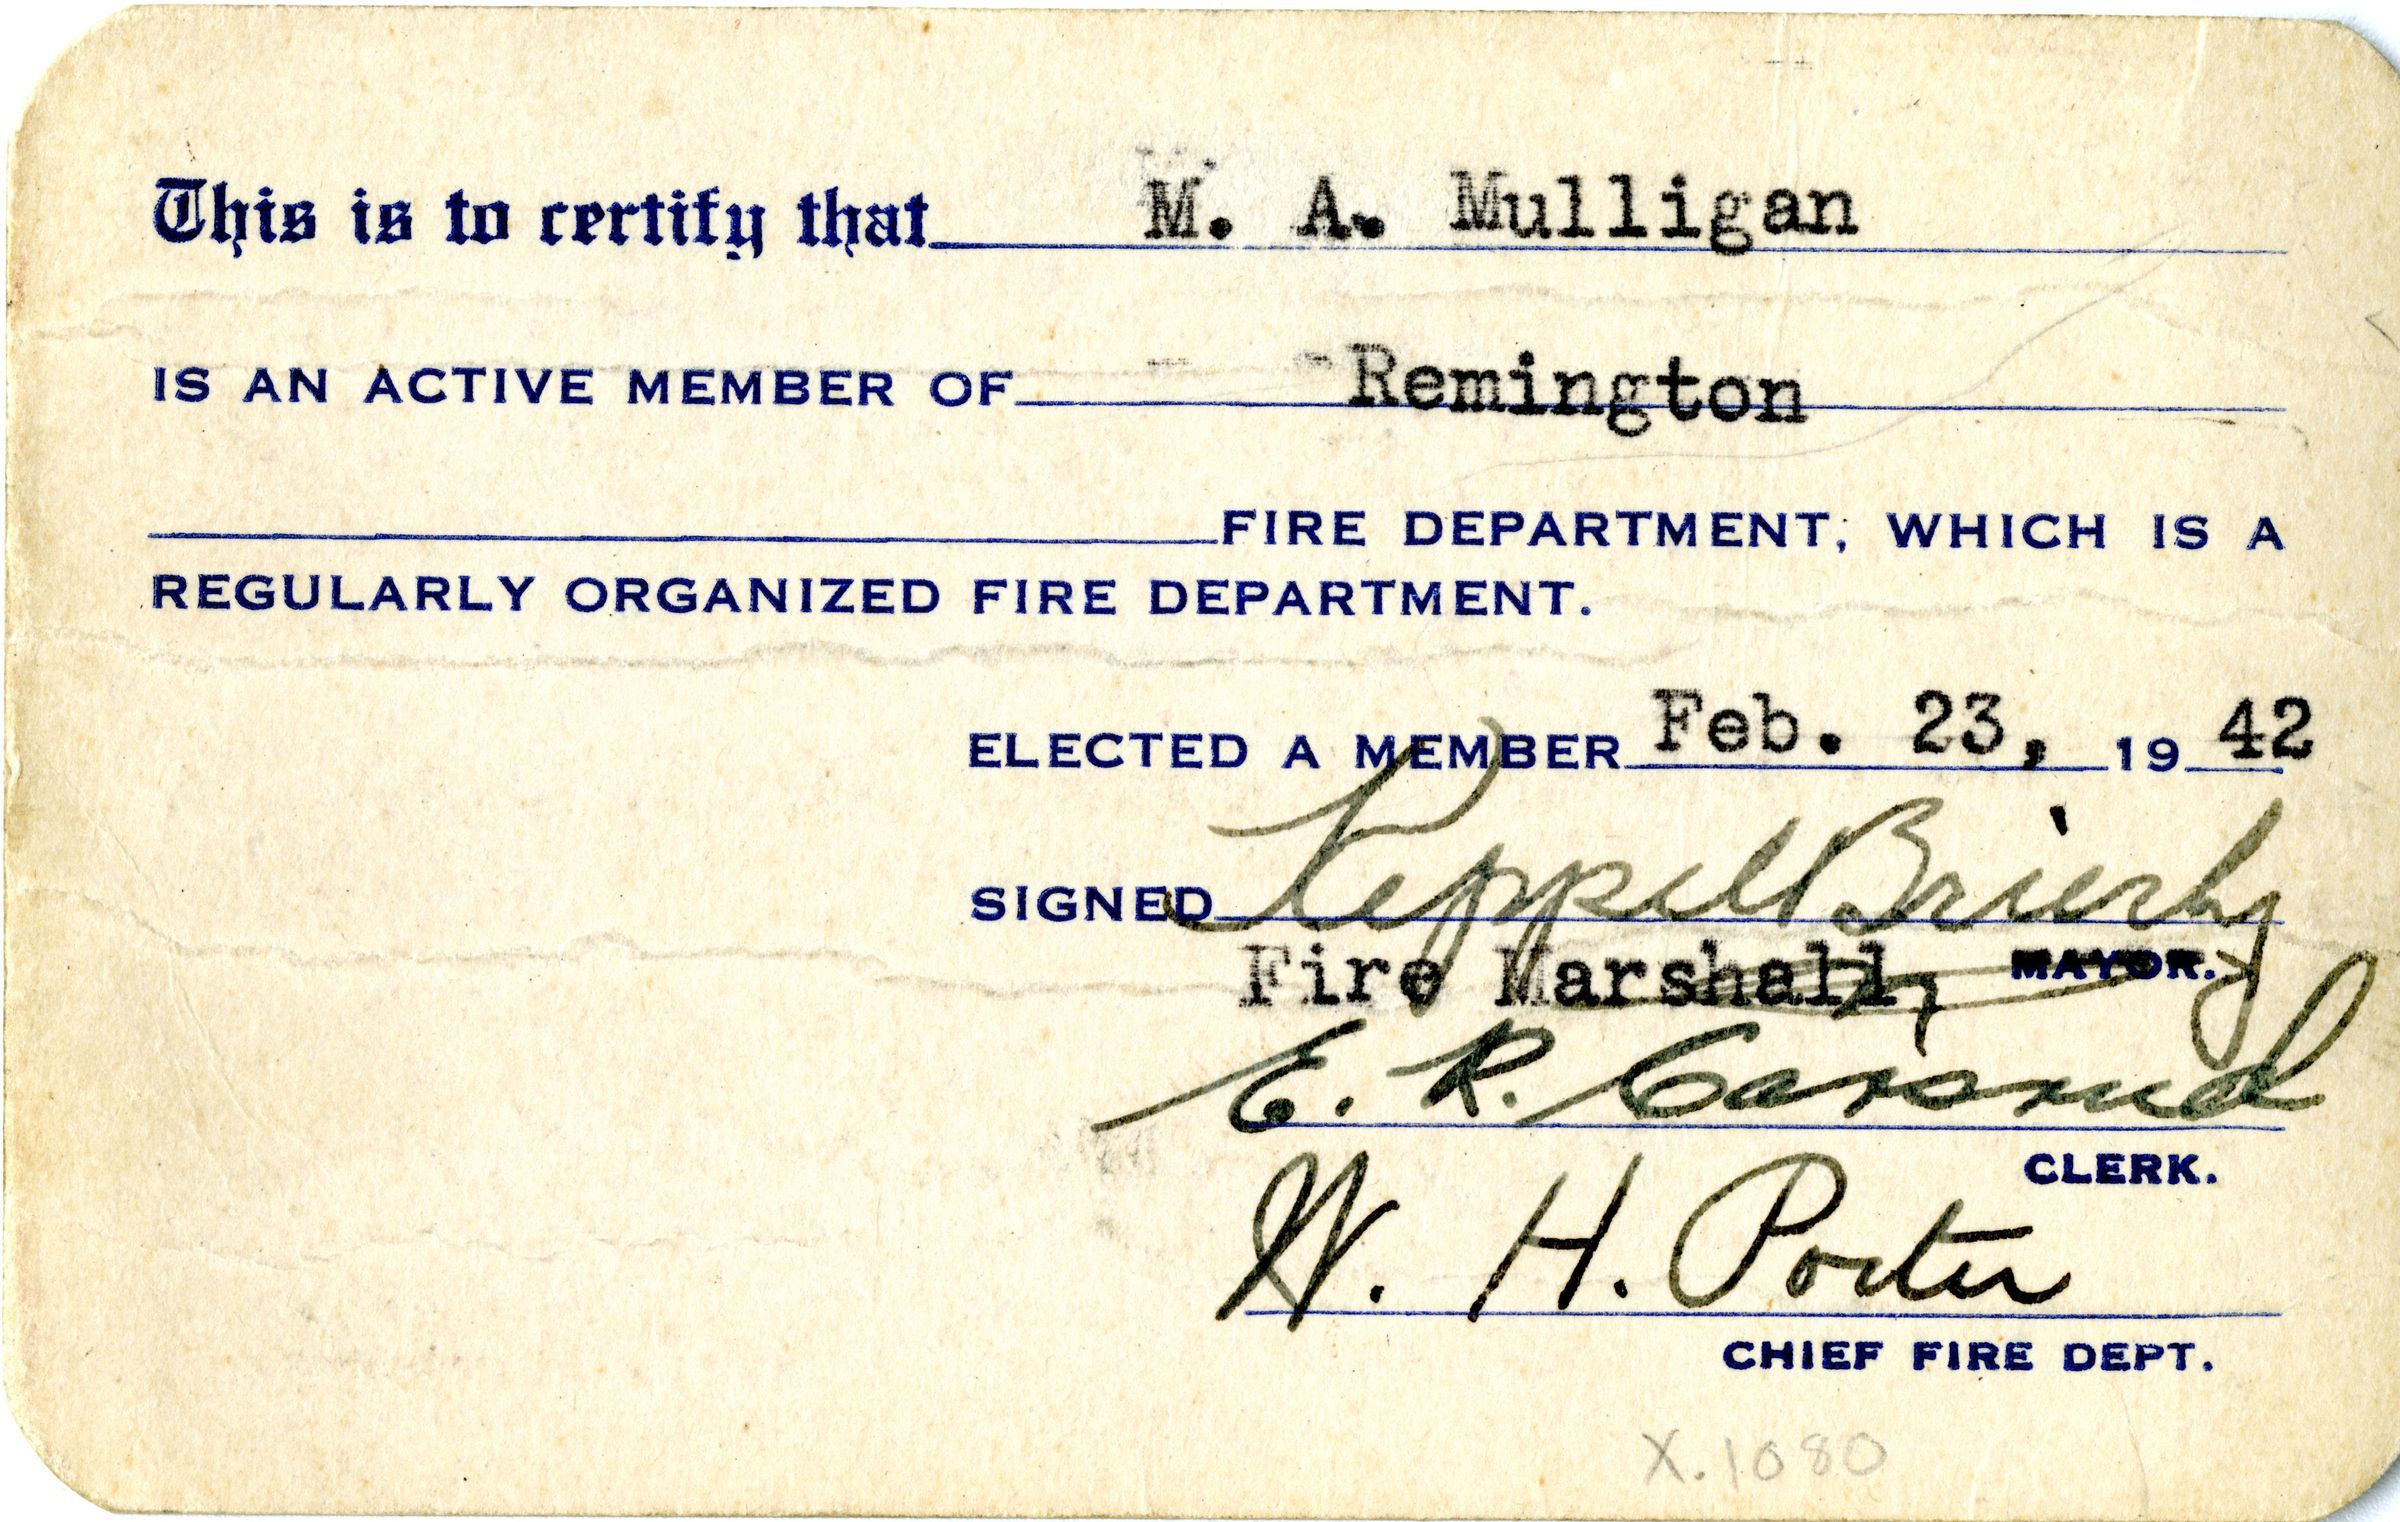 This is to certify that M. A. Mulligan
IS AN ACTIVE MEMBER OF Remington
FIRE DEPARTMENT, WHICH IS A
REGULARLY ORGANIZED FIRE DEPARTMENT.
ELECTED A MEMBER Feb. 23, 19 42
SIGNED Keppel Brierly
Fire Marshall, MAYOR.
E. R.
CLERK.
W. H. Porter
CHIEF FIRE DEPT.
X.1080